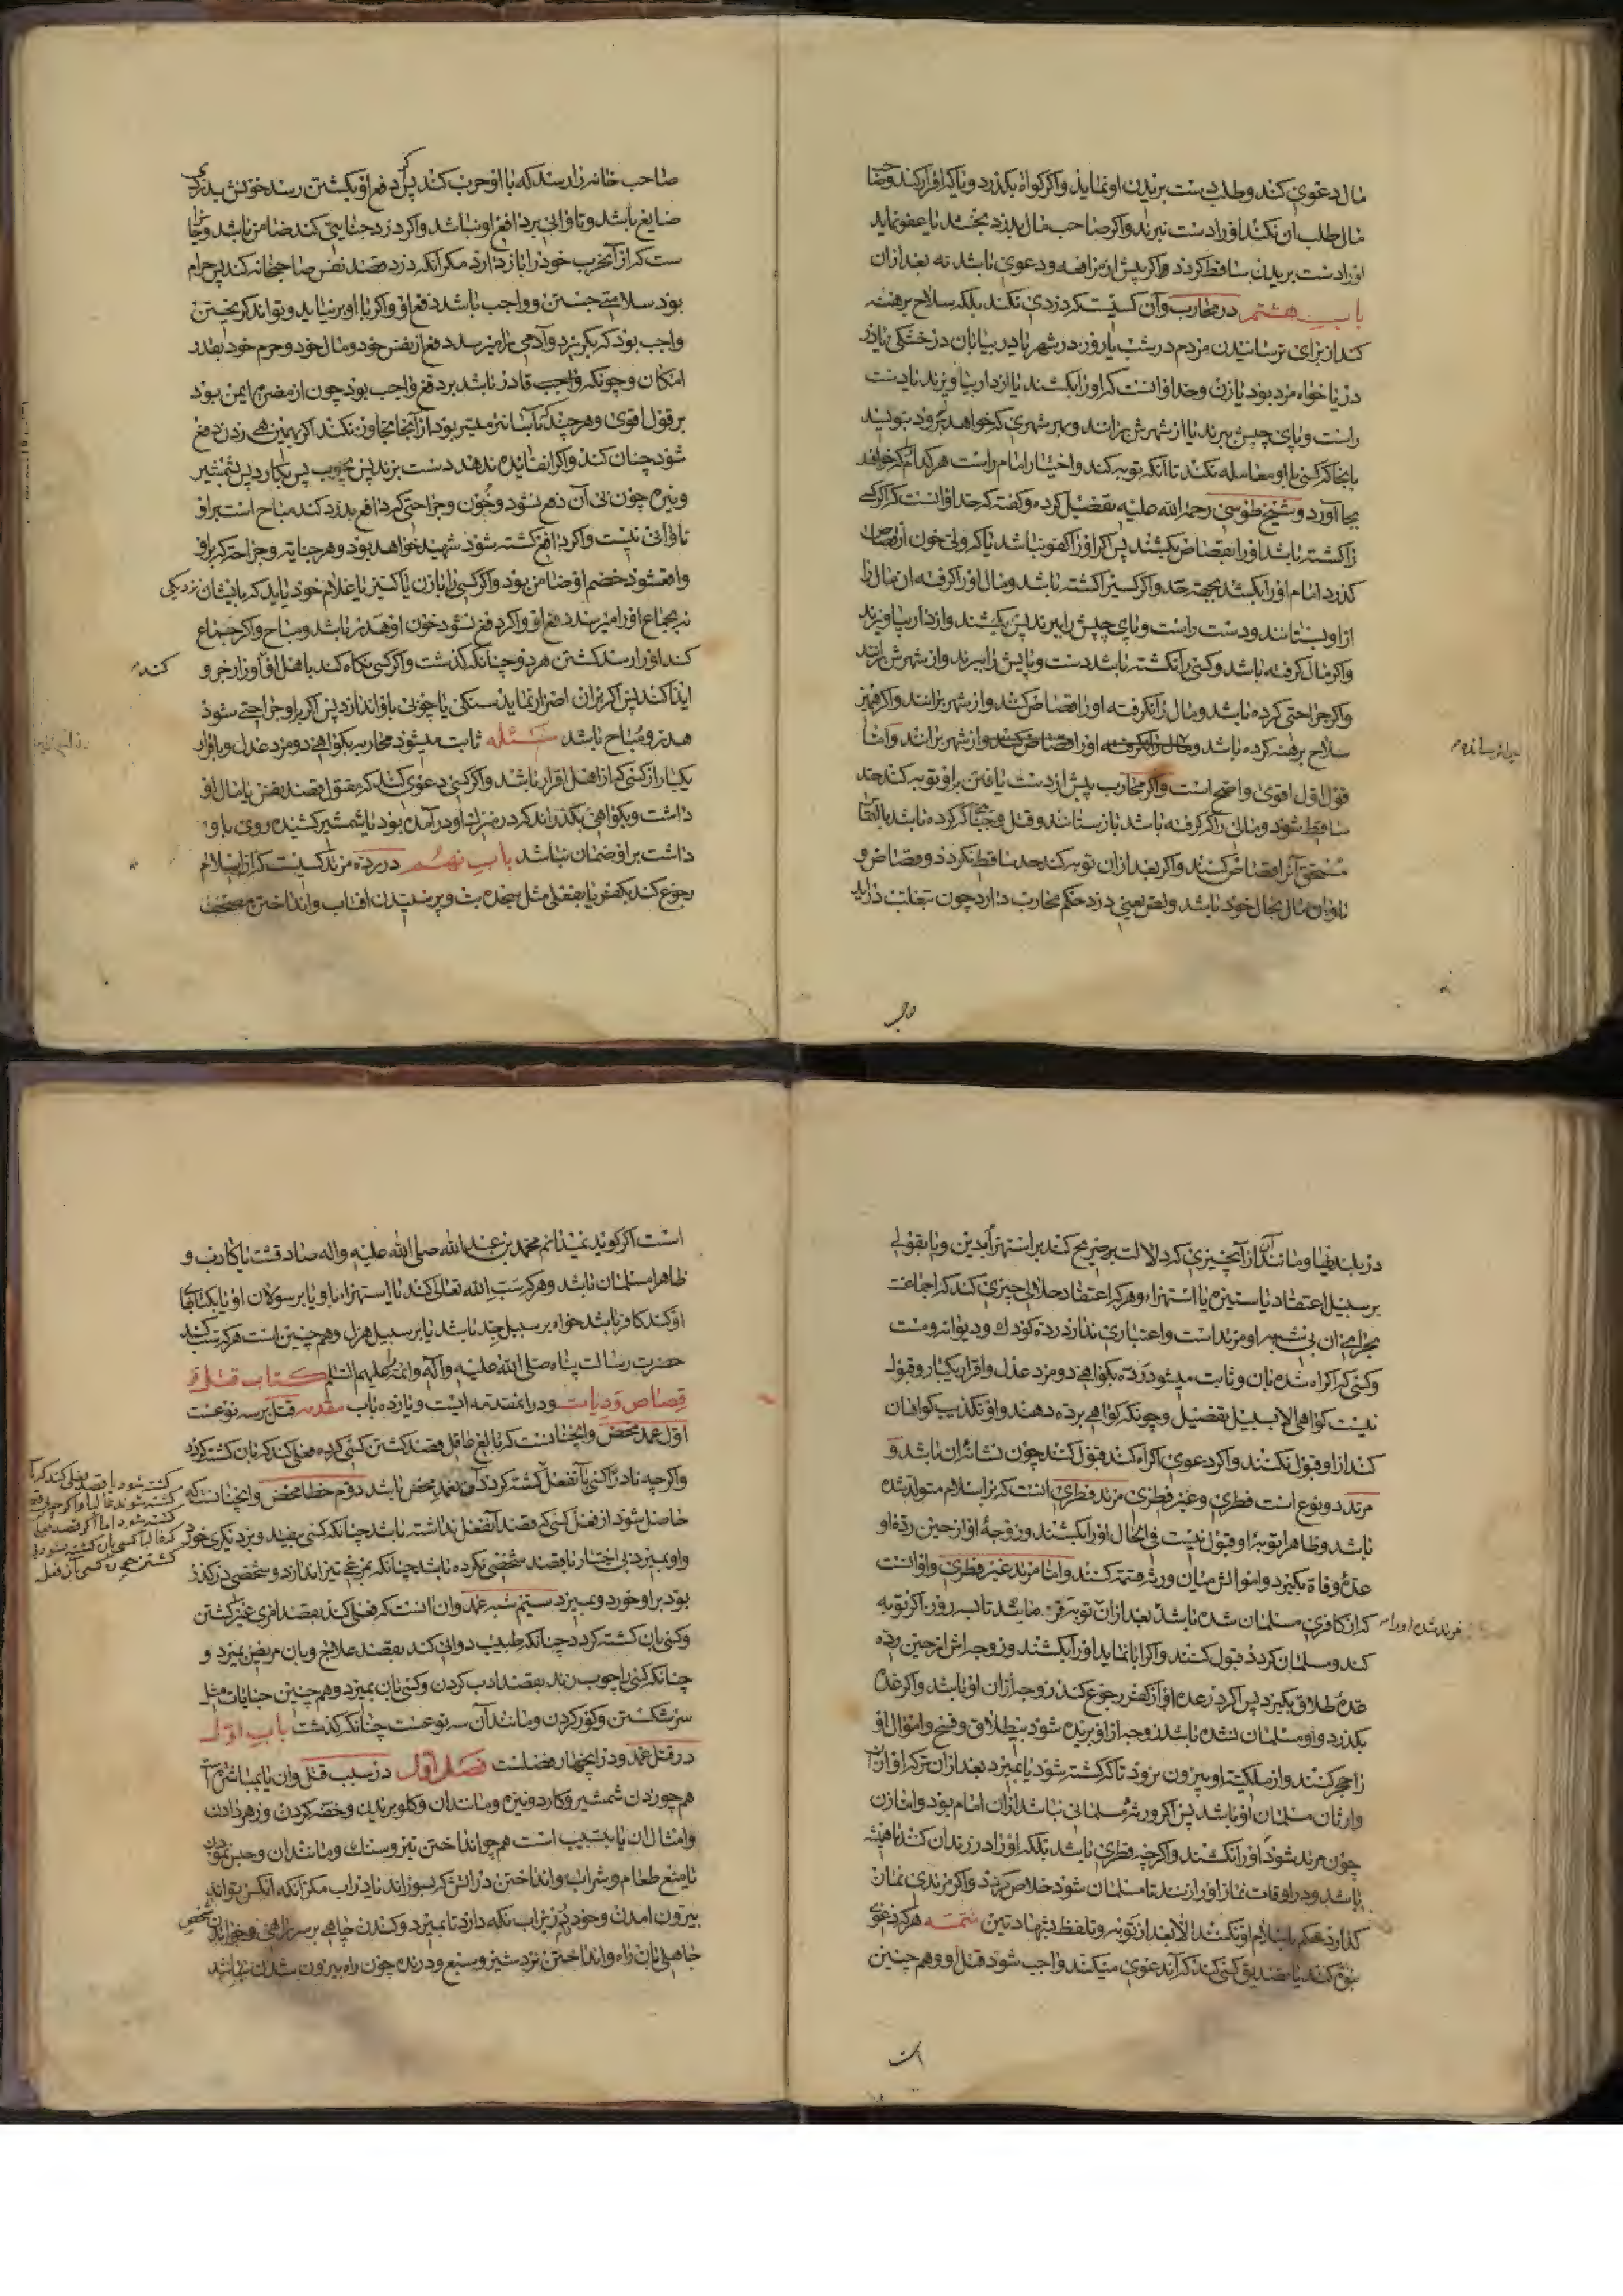 مال دعوی کند و طلب دست بریدن او نماید و اگر گواه بگذرد و یا که اقرار کند و صاحب
مال طلب آن نکند او را دست نبرند و اگر صاحب مال بدزد بخشد یا عفو نماید
او را دست بریدن ساقط گردد و اگر پیش از مرافعه و دعوی باشد نه بعد از آن
باب هشتم در محارب و آن کسیست که دزدی نکند بلکه سلاح برهنه
کند از برای ترسانیدن مردم در شب یا روز در شهر یا در بیابان در خشکی یا در
دریا خواه مرد بود یا زن و حد او آنست که او را بکشند یا از دار بیاویزند یا دست
راست و پای چپش ببرند یا از شهرش برانند و بهر شهری که خواهد برود بنویسند
بآنجا که کسی با او معامله نکند تا آنکه توبه کند و اختیار امام راست هر کدام که خواهد
بجا آورد و شیخ طوسی رحمة الله علیه تفصیل کرده و گفته که حد او آنست که اگر کسی
را کشته باشد او را بقصاص بکشند پس اگر او را کفو نباشد یا که ولی خون از قصاص
گذرد امام او را بکشد بجهة حد و اگر کسی را کشته باشد و مال او را گرفته آن مال را
از او بستانند و دست راست و پای چپش را ببرند پس بکشند و از دار بیاویزند
و اگر مال گرفته باشد و کسی را نکشته باشد دست و پایش را ببرند و از شهرش برانند
و اگر جراحتی کرده باشد و مال را نگرفته او را قصاص کنند و از شهر برانند و اگر همین
سلاح برهنه کرده باشد و مال را نگرفته او را قصاص کنند و از شهر برانند و اما
قول اول اقوی و اضح است و اگر محارب پیش از دست یافتن بر او توبه کند حد
ساقط شود و مالی را که گرفته باشد باز ستانند و قتل و جنایت که کرده باشد بالتماس
مستحق آنرا قصاص کنند و اگر بعد از آن توبه کند حد ساقط نگردد و قصاص و
تاوان مال بحال خود باشد و لص یعنی دزد حکم محارب دارد چون بتغلب درآید
صاحب خانه را رسد که با او حرب کند پس اگر دفع او بکشتن رسد خونش بدزدی
ضایع باشد و تاوانی بر دافع او نباشد و اگر دزد جنایتی کند ضامن باشد و جایز
ست که از آن حرب خود را باز دارد مگر آنکه دزد قصد نفس صاحبخانه کند پس حرام
بود سلامتی جستن و واجب باشد دفع او و اگر با او برنیاید و تواند گریختن
واجب بود که بگریزد و آدمی را میرسد دفع از نفس خود و مال خود و حرم خود بقدر
امکان و چونکه واجب قادر باشد بر دفع واجب بود چون از مضرت ایمن بود
بر قول اقوی و هر چند که بآسانتر میسر بود از آنجا تجاوز نکند اگر بهمین هی زدن دفع
شود چنان کند و اگر آنفایده ندهد دست بزند پس بچوب پس بکارد پس بشمشیر
و نیزه چون بی آن دفع نشود و خون و جراحتی که دافع بدزد کند مباح است بر او
تاوانی نیست و اگر دافع کشته شود شهید خواهد بود و هر جنایة و جراحتی که بر او
واقع شود خصم او ضامن بود و اگر کسی را با زن یا کنیز یا غلام خود یابد که بایشان نزدیکی
نه بجماع او را میرسد دفع او و اگر دفع نشود خون او هدر باشد و مباح و اگر جماع
کند او را رسد کشتن هر دو چنانکه گذشت و اگر کسی نگاه کند باهل او او را زجر و
ایذا کند پس اگر بر آن اصرار نماید سنگی یا چوبی باو اندازد پس اگر بر او جراحتی شود
هدر و مباح باشد مسئله ثابت میشود محاربه بگواهی دو مرد عدل و باقرار
یکبار از کسی که از اهل اقرار باشد و اگر کسی دعوی کند که مقتول قصد نفس یا مال او
داشت و بگواهی بگذراند که در منزل او در آمده بود با شمشیر کشیده روی باو
داشت بر او ضمان نباشد باب نهم در رده مرتد کسیست که از اسلام
رجوع کند بکفر یا بفعلی مثل سجده بت و پرستیدن آفتاب و انداختن مصحف
واجب
در پلیدیها و مانند آن از آنچیزی که دلالت بر صریح کند بر استهزا بدین و یا بقولی
بر سبیل اعتقاد یا ستیزه یا استهزاء و هر که اعتقاد حلالی چیزی کند که اجماعست
بحرامی آن بی شبهه او مرتد است و اعتباری ندارد رده کودک و دیوانه و مست
و کسی که اکراه شده بآن و ثابت میشود رده بگواهی دو مرد عدل و اقرار یکبار و قبول
نیست گواهی الا بسبیل تفصیل و چونکه گواهی برده دهند و او تکذیب گواهان
کند از او قبول نکنند و اگر دعوی اکراه کند قبول کنند چون نشانه آن باشد و
مرتد دو نوع است فطری و غیر فطری مرتد فطری آنست که بر اسلام متولد شده
باشد و ظاهرا توبه او قبول نیست فی الحال او را بکشند و زوجهٔ او از حین رده او
عدهٔ وفاة بگیرد و اموالش میان ورثه قسمت کنند و اما مرتد غیر فطری و او آنست
که از کافری مسلمان شده باشد بعد از آن مرتد شده او را توبه فرمایند تا سه روز اگر توبه
کند و مسلمان گردد قبول کنند و اگر ابا نماید او را بکشند و زوجه اش از حین رده
عدهٔ طلاق بگیرد پس اگر در عده او از کفر رجوع کند زوجه از آن او باشد و اگر عده
بگذرد و او مسلمان نشده باشد زوجه از او بریده شود بیطلاق و فسخ و اموال او
را حجر کنند و از ملکیت او بیرون نرود تا که کشته شود یا بمیرد بعد از آن ترکه او از آن
وارثان مسلمان او باشد پس اگر ورثهٔ مسلمانی نباشد از آن امام بود و اما زن
چون مرتد شود او را نکشند و اگر چه فطری باشد بلکه او را در زندان کنند تا همیشه
باشد و در اوقات نماز او را زنند تا مسلمان شود خلاص گردد و اگر مرتدی نماز
گذارد حکم باسلام او نکنند الا بعد از توبه و تلفظ بشهادتین تتمه هر که دعوی
نبوة کند یا تصدیق کسی کند که آن دعوی میکند واجب شود قتل او و هم چنین
است
است اگر گوید نمیدانم محمد بن عبد الله صلی الله علیه و اله صادقست یا کاذب و
ظاهرا مسلمان باشد و هر که سب الله تعالی کند یا استهزاء باو یا بر سولان او یا بکتابها
او کند کافر باشد خواه بر سبیل جد باشد یا بر سبیل هزل و هم چنین است هر که سب کند
حضرت رسالت پناه صلی الله علیه و آله و ائمه را علیهم السلام کتاب قتل و
قصاص و دیات و در او مقدمه ایست و یازده باب مقدمه قتل بر سه نوعست
اول عمد محض و آنچنانست که بالغ عاقل قصد کشتن کسی کرده فعلی کند که بآن کشته گردد
و اگر چه نادرا کسی بآنفعل کشته گردد آن بعمد محض باشد دوم خطا محض و آنچنانست که
حاصل شود از فعل کسی که قصد آنفعل نداشته باشد چنانکه کسی بیفتد و بر دیگری خورد
و او بمیرد بی اختیار یا بقصد شخصی نکرده باشد چنانکه بمرغی تیر اندازد و شخصی در گذر
بود بر او خورد و بمیرد سیم شبه عمد و آن آنست که فعلی کند بقصد امری غیر کشتن
و کسی بآن کشته گردد چنانکه طبیب دوائی کند بقصد علاج و بآن مریض بمیرد و
چنانکه کسی را چوب زند بقصد ادب کردن و کسی بآن بمیرد و هم چنین جنایات مثل
سر شکستن و کور کردن و مانند آن سه نوعست چنانکه گذشت باب اول
در قتل عمد و در او چهار فصلست فصل اول در سبب قتل و آن یا بمباشرت است
هم چو زدن شمشیر و کارد و نیزه و مانند آن و گلو بریدن و خفه کردن و زهر دادن
و امثال آن یا بتسبیب است هم چو انداختن تیر و سنگ و مانند آن و حبس نمودن
یا منع طعام و شراب و انداختن در آتش که بسوزاند یا در آب مگر آنکه آنکس تواند
بیرون آمدن و خود در زیر آب نگه دارد تا بمیرد و کندن چاهی بر سر راهی و خواندن شخصی
جاهلی بآن راه و انداختن نزد شیر و سبع و درنده چون راه بیرون شدن نباشد